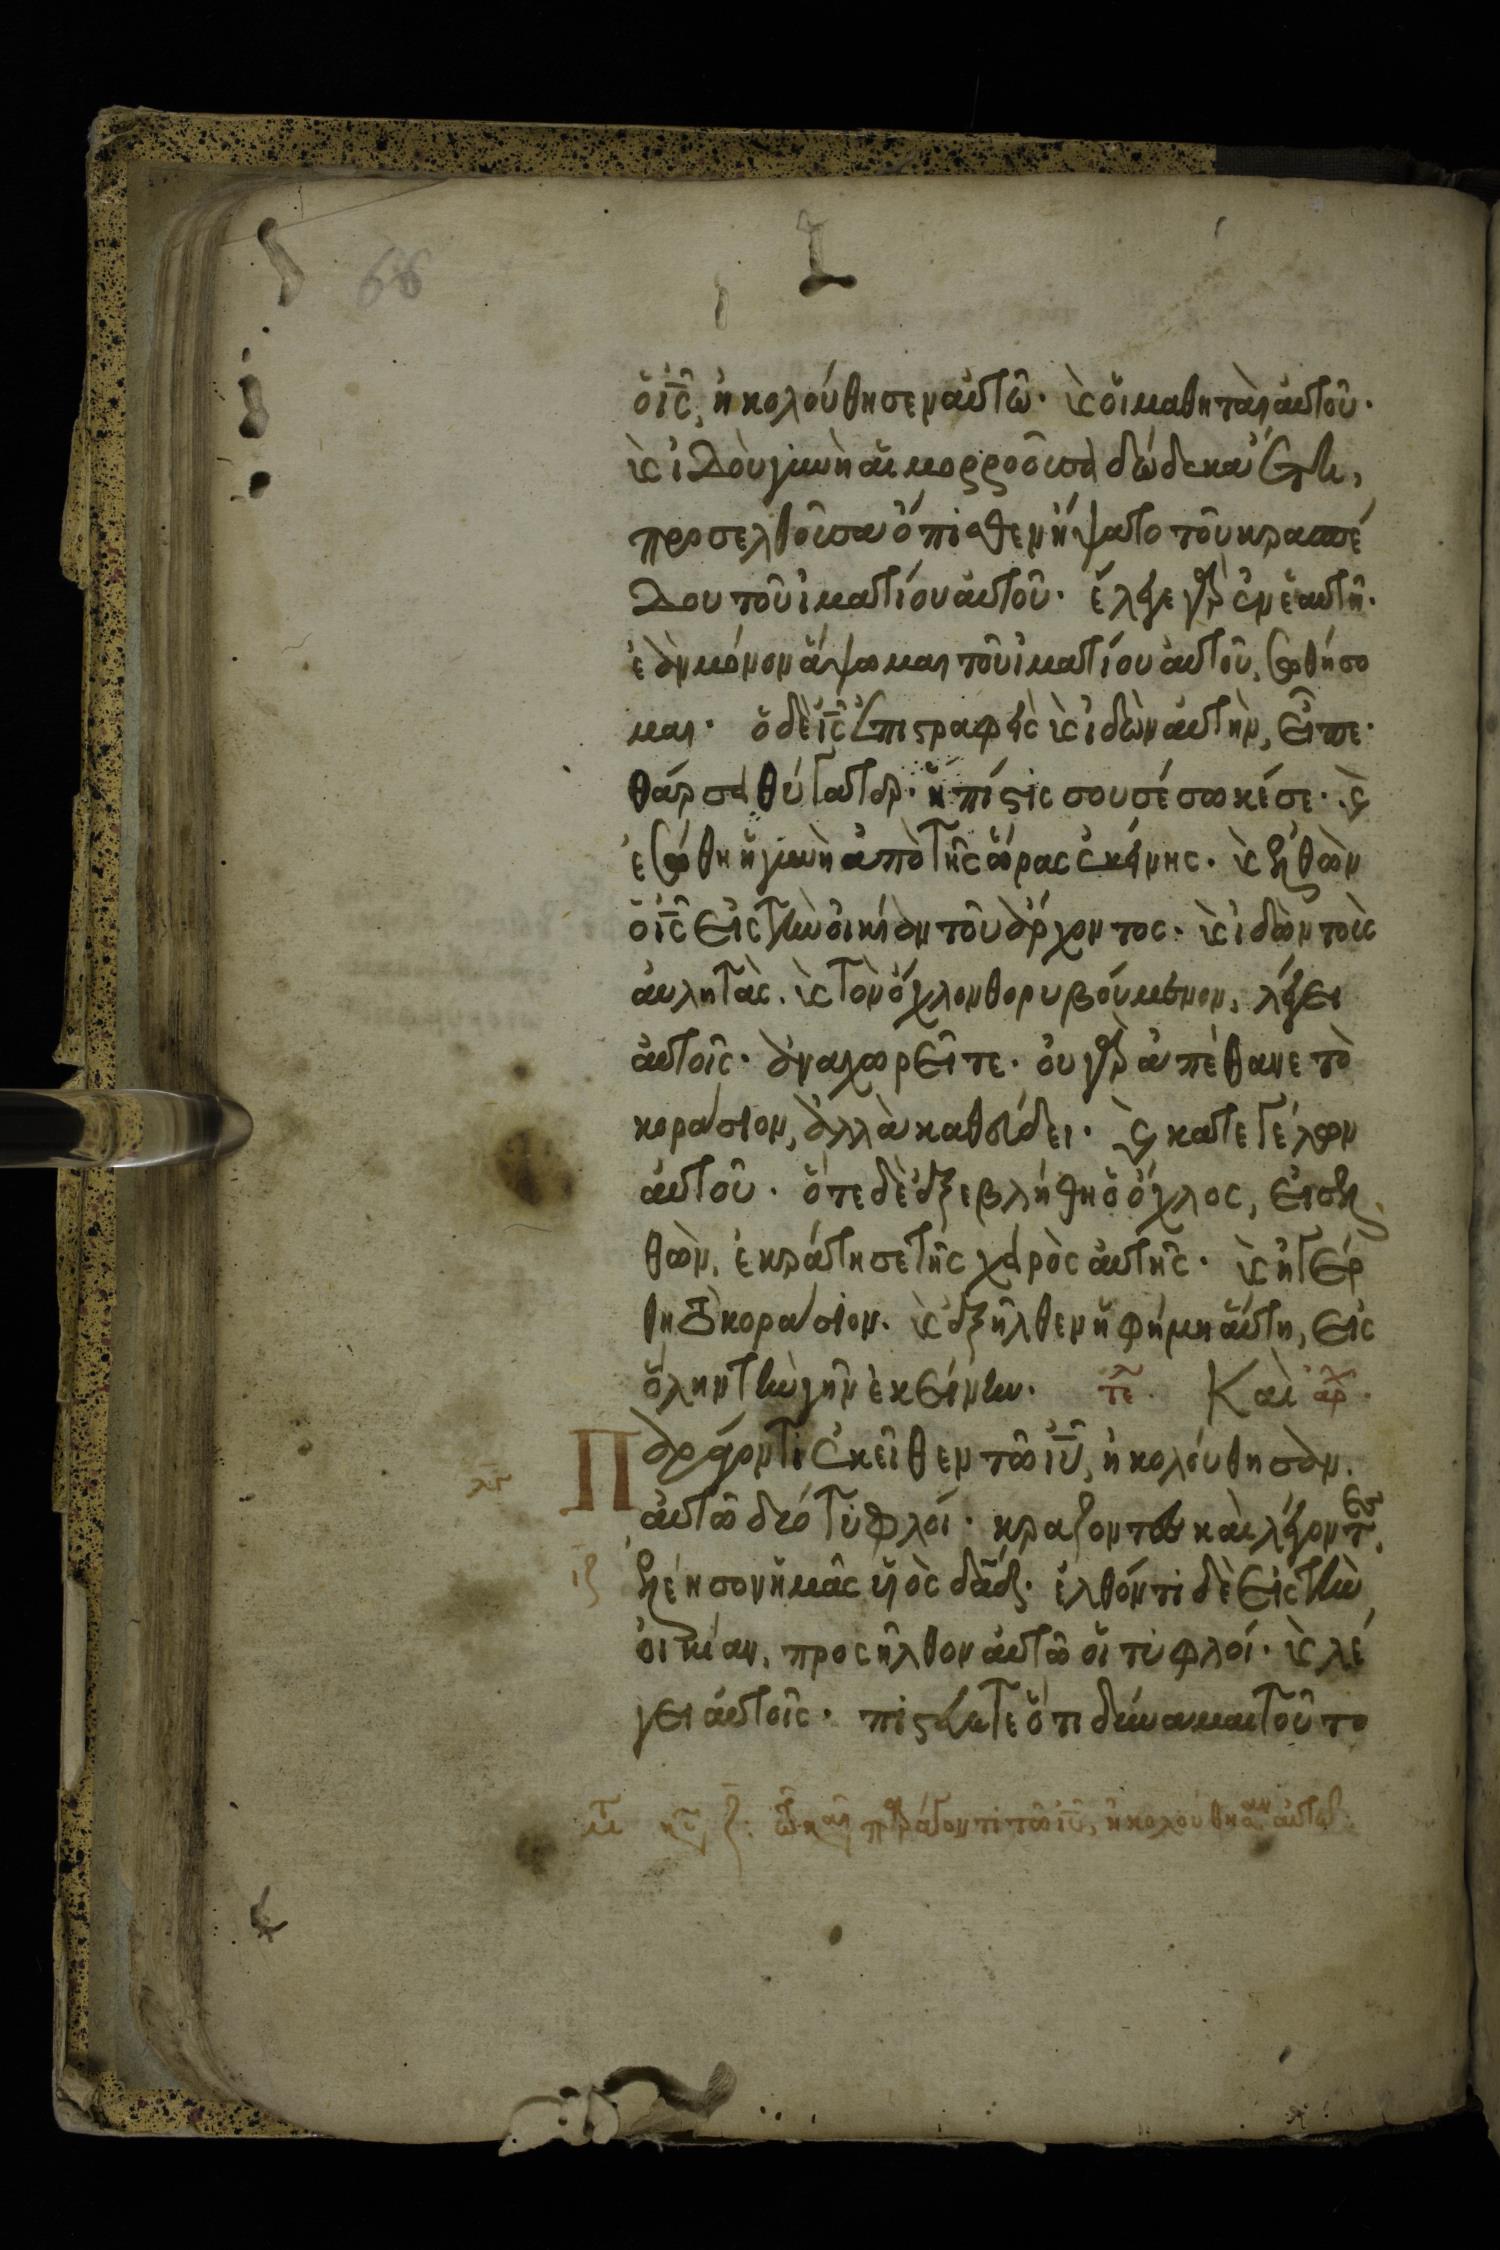 68
ὁ ἰ̅ς̅, ἠκολούθησεν αὐτῶ· κ̀ οἱ μαθηταὶ αὐτοῦ·
κ̀ ἰδοὺ γυνὴ αἱμορροοῦσα δώδεκα ἔτη,
προσελθοῦσα ὄπισθεν ἥψατο τοῦ κρασπέ
δου τοῦ ἱματίου αὐτοῦ· ἔλεγε γὰρ ἐν ἑαυτῆ·
ἐὰν μόνον ἅψωμαι τοῦ ἱματίου αὐτοῦ, σωθήσο
μαι· ὁ δὲ ἰ̅ς̅ ἐπιστραφεὶς κ̀ ἰδὼν αὐτὴν, εἶπε·
θάρσει θύγατερ· ἡ πίστις σου σέσωκέ σε· κ̀
ἐσώθη ἡ γυνὴ ἀπὸ τῆς ὥρας ἐκείνης· κ̀ ἐλθὼν
ὁ ἰ̅ς̅ εἰς τὴν οἰκίαν τοῦ ἄρχοντος· κ̀ ἰδὼν τοὺς
αὐλητὰς. κ̀ τὸν ὄχλον θορυβούμενον, λέγει
αὐτοῖς· ἀναχωρεῖτε· οὐ γὰρ ἀπέθανε τὸ
κοράσιον, ἀλλὰ καθεύδει· κ̀ κατεγέλων
αὐτοῦ· ὅτε δὲ ἐξεβλήθη ὁ ὄχλος, εἰσελ
θὼν, ἐκράτησε τῆς χειρὸς αὐτῆς· κ̀ ἠγέρ
θη τὸ κοράσιον. κ̀ ἐξῆλθεν ἡ φήμη αὕτη, εἰς
ὅλην τὴν γῆν ἐκείνην. τε. Καὶ ἀρχ.
Παράγοντι ἐκεῖθεν τῶ ἰ̅υ̅, ἠκολούθησαν
αὐτῶ δύο τυφλοί· κράζοντες καὶ λέγοντες,
ἐλέησον ἡμᾶς υἱὸς δα̅δ̅· ἐλθόντι δὲ εἰς τὴν
οἰκίαν, προσῆλθον αὐτῶ οἱ τυφλοί· κ̀ λέ
γει αὐτοῖς· πιστεύετε ὅτι δύναμαι τοῦτο
τῶ καιρῶ παράγοντι τῶ ἰ̅υ̅, ἠκολούθησαν αὐτῶ